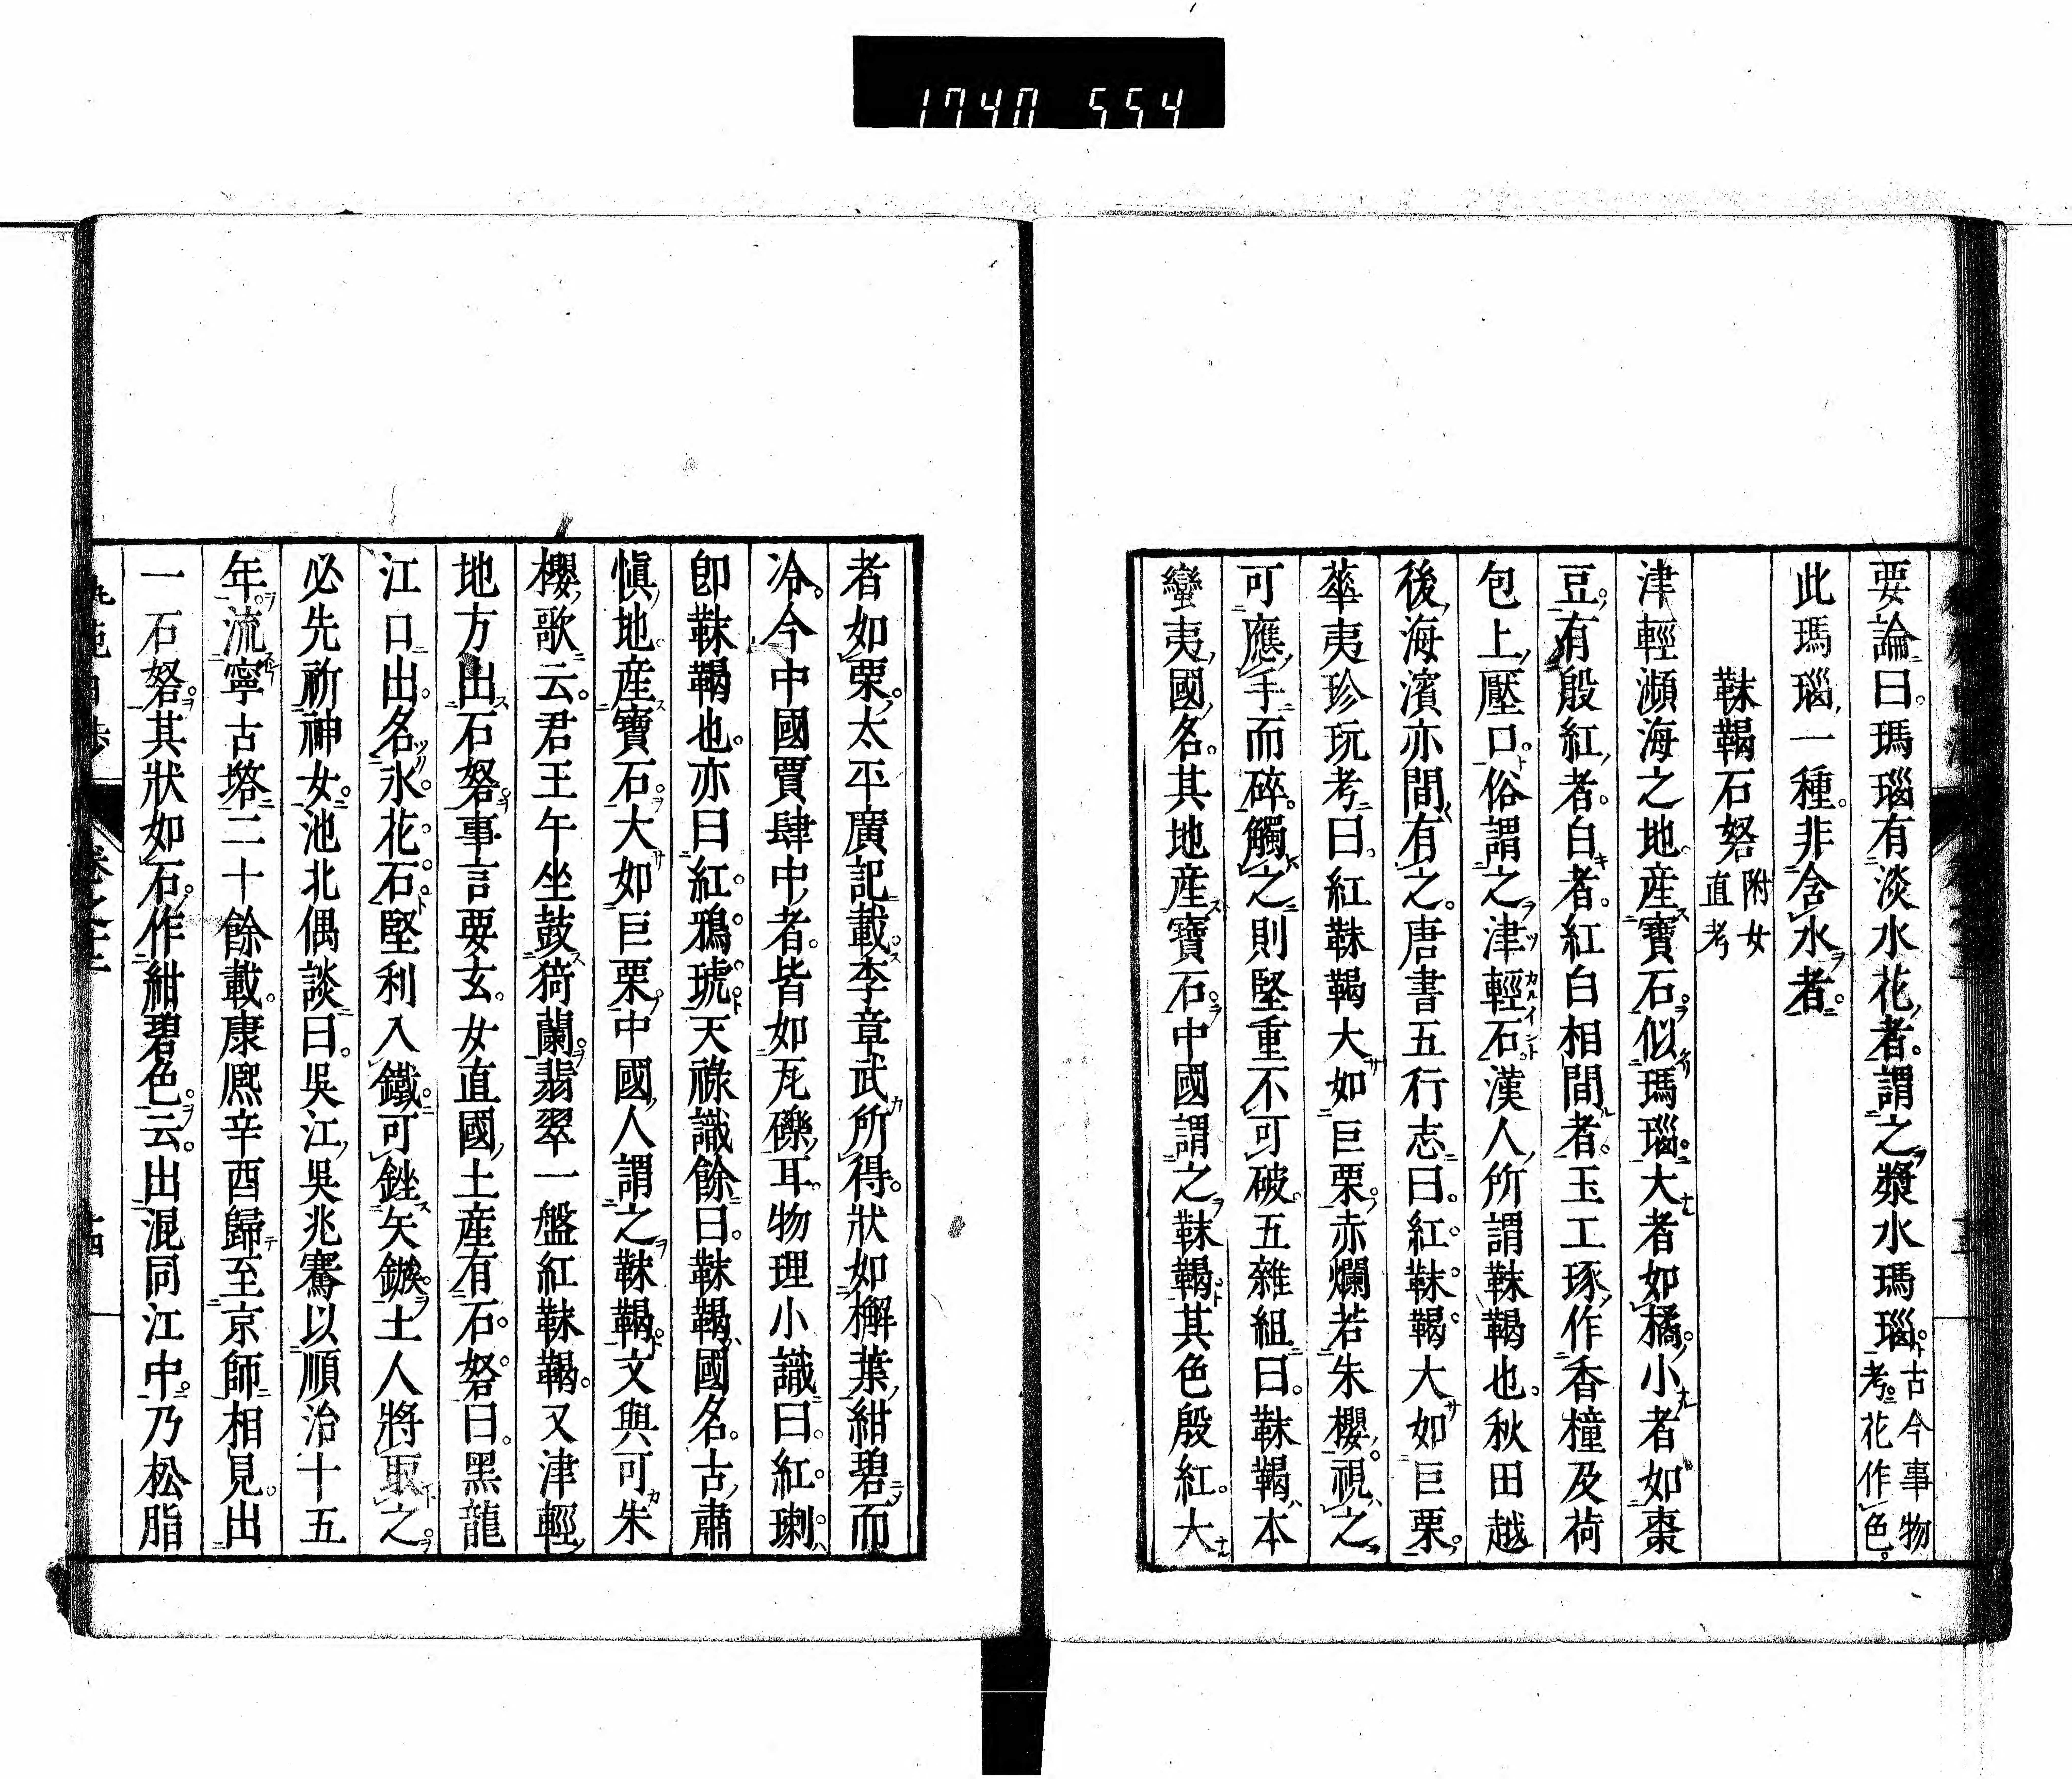 1740 554
要論曰。瑪瑙有淡水花者。謂之漿水瑪瑙。古今事物考。花作色。
此瑪瑙一種。非含水者。
靺鞨石砮附女直考
津輕瀕海之地。産寶石。似瑪瑙。大者如橘。小者如棗
豆。有殷紅者。白者。紅白相間者。玉工琢作香橦及荷
包上壓口。俗謂之津輕石。漢人所謂靺鞨也。秋田越
後海濱亦間有之。唐書五行志曰。紅靺鞨大如巨栗。
華夷珍玩考曰。紅靺鞨大如巨栗。赤爛若朱櫻。視之
可應手而碎。觸之則堅重不可破。五雜組曰。靺鞨本
蠻夷國名。其地産寶石。中國謂之靺鞨。其色殷紅。大
者如栗。太平廣記載李章武所得。狀如槲葉。紺碧而
冷。今中國賈肆中者。皆如瓦礫耳。物理小識曰。紅瑡
卽靺鞨也。亦曰紅鴉琥。天祿識餘曰。靺鞨國名。古肅
愼地。産寶石。大如巨栗。中國人謂之靺鞨。文與可朱
櫻歌云。君王午坐鼓猗蘭。翡翠一盤紅靺鞨。又津輕
地方出石砮。事言要玄。女直國土産有石砮。曰黑龍
江口出。名水花石。堅利入鐵。可銼矢鏃。土人將取之。
必先祈神女。池北偶談曰。吳江吳兆騫以順治十五
年。流寧古塔二十餘載。康熙辛酉歸至京師相見。出
一石砮。其狀如石。作紺碧色。云。出混同江中。乃松脂